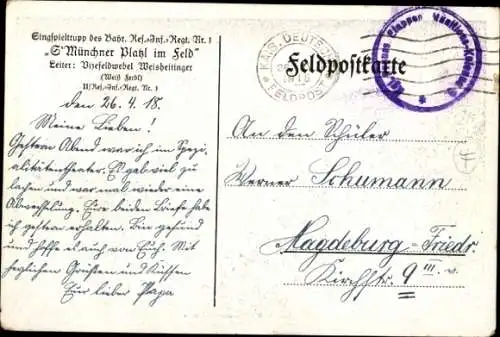 Singspieltrupp des Bayr. Res.-Inf.-Regt. Nr. 1
"S' Münchner Platzl im Feld"
Leiter: Vizefeldwebel Weißheitinger
(Weiß Ferdl)
II/Res.-Inf.-Regt. Nr. 1
den 26.4.18.
Meine Lieben!
Gestern Abend war ich im Spezi-
alitätentheater. Es gab viel zu
lachen und war mal wieder eine
Abwechslung. Eure beiden Briefe habe
ich gestern erhalten. Bin gesund
und hoffe es auch von Euch. Mit
herzlichen Grüssen und Küssen
Euer lieber Papa
KAIS. DEUTSCHE
FELDPOST
Feldpostkarte
Etappen Munitions-Kolonne
An den Schüler
Werner Schumann
Magdeburg-Friedr.
Kirchstr. 9 III. v.
F